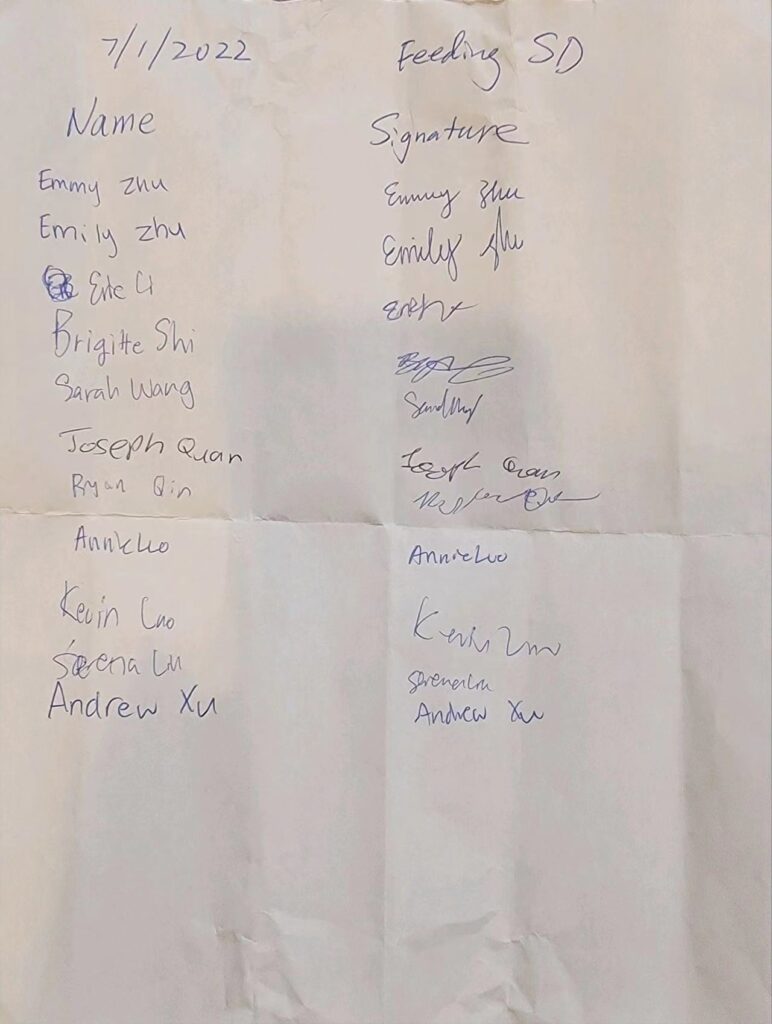 7/1/2022 Feeding SD
Name Signature
Emmy Zhu Emmy Zhu
Emily Zhu Emily Zhu
Eric Li
Brigitte Shi
Sarah Wang
Joseph Quan Joseph Quan
Ryan Qin
Annie Luo Annie Luo
Kevin Luo Kevin
Serena Liu Serena Liu
Andrew Xu Andrew Xu